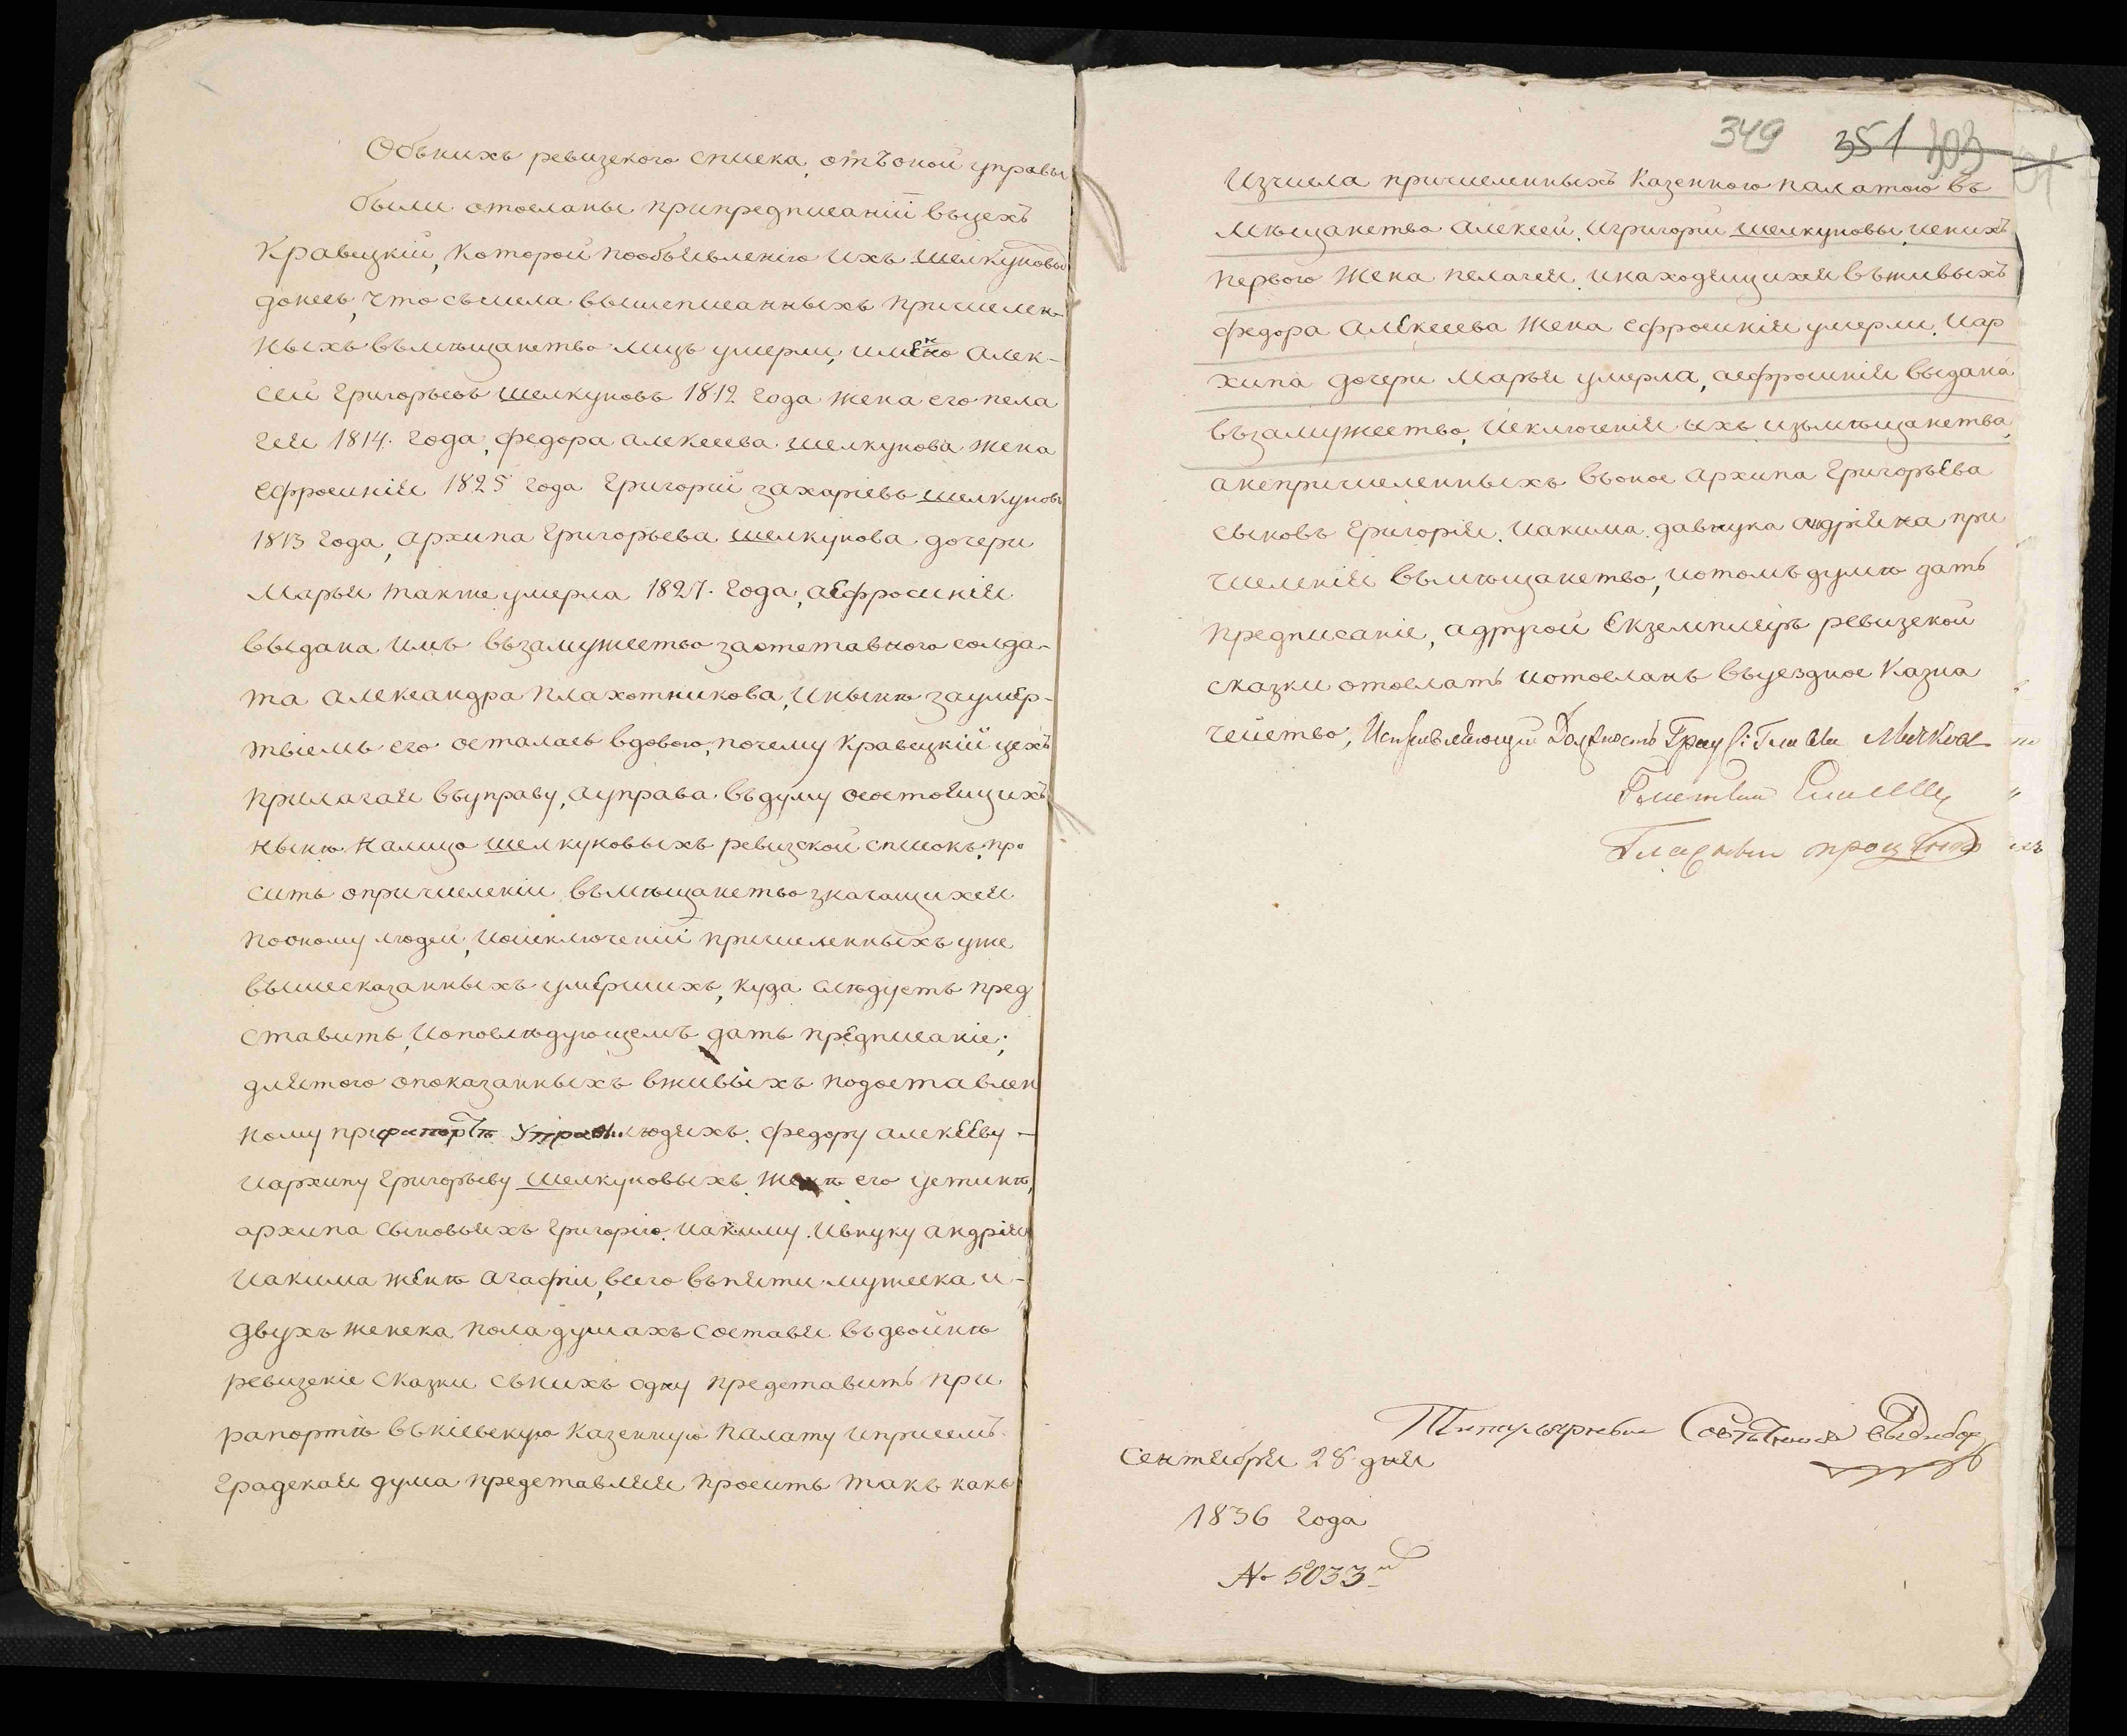 Объ нихъ ревизского списка, отъ оной управы
были отосланы при предписаніи въ цехъ
Кравецкій, которой по объявленію ихъ Шелкуновы
донесъ, что съ числа вышеписанныхъ причислен-
ныхъ въ мѣщанство лицъ умерли, имѣнно Алек-
сей Григорьевъ Шелкуновъ 1812 года жена его Пела
гея 1814. года, Федора Алексеева Шелкунова жена
Ефросинія 1825 года Григорій Захаріевъ Шелкуновъ
1813 года, Архипа Григорьева Шелкунова дочери
Марья также умерла 1827. года, а Ефросинія
выдана имъ въ замужество за отставного солда-
та Александра Плахотникова, и нынѣ за умер-
твіемъ его осталась вдовою, почему Кравецкій цехъ
прилагая въ управу, а управа въ думу о состоящихъ
нынѣ на лицо Шелкуновыхъ ревизской списокъ, про
сить о причисленіи въ мѣщанство значащихся
по оному людей, и о исключеніи причисленныхъ уже
вышесказанныхъ умершихъ, куда слѣдуетъ пред
ставить, и о послѣдующемъ дать предписаніе;
для того о показанныхъ в живыхъ по доставлен
ному при рапортѣ Управы людяхъ. Федору Алексееву –
и Архипу Григорьеву Шелкуновыхъ. женѣ его Устинѣ,
Архипа сыновьяхъ Григорію. Иакиму. и внуку Андрія
Иакима женѣ Агафіи, всего въ пяти мужеска и –
двухъ женска пола душахъ составя въ двойнѣ
ревизскіе сказки съ нихъ одну представить при
рапортѣ въ Кіевскую Казенную Палату и при семъ
Градская дума представляя проситъ такъ какъ
349 351 303
Изчисла причисленныхъ Казенною палатою въ
мѣщанство Алексей. и Григорій Шелкуновы, и с нихъ
первого жена Пелагея. и находящихся въ живыхъ
Федора Алексеева жена Ефросинія умерли. и Ар
хипа дочери Марья умерла, а Ефросинія выдана
въ замужество, исключенія ихъ изъ мѣщанства,
а непричисленныхъ въ оное Архипа Григорьева
сыновъ Григорія. Иакима. да внука Андрія на при
численія въ мѣщанство, и о томъ думѣ дать
предписаніе, а другой Екземпляръ ревизской
сказки отослать и отосланъ въ уездное Казна
чейство, Исправляющій Должность Град: Главы
Гласный
Гласный
Титулярный Советникъ
Сентября 28 дня
1836 года
№ 5033